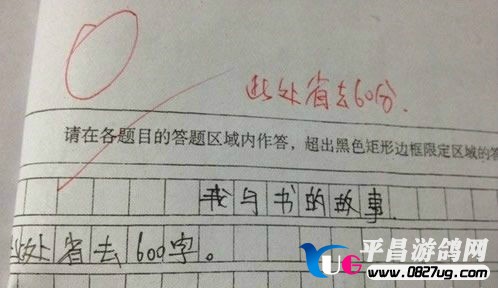 此处省去60分.
请在各题目的答题区域内作答，超出黑色矩形边框限定区域的答
我与书的故事.
此处省去600字。
平昌游鸽网
YUG
www.0827ug.com